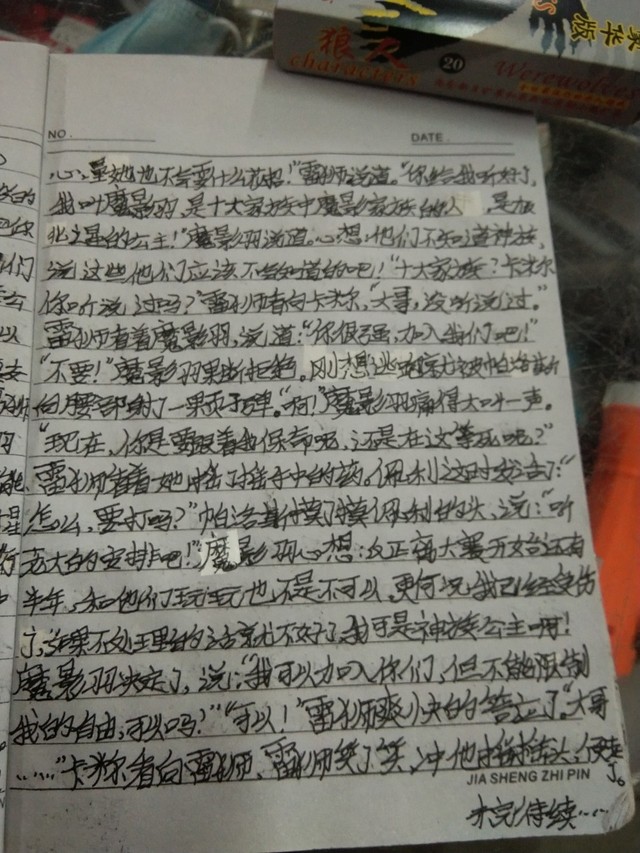 狼人
characters
20
Werewolves
NO.
DATE.
心，量她也不会耍什么花招！”雷狮说道。“你给我听好了，
我叫魔影羽，是十大家族中魔影家族的人，是
北之星的公主！”魔影羽说道。心想：他们不知道神族，
说这些他们应该不会知道的吧！“十大家族？卡米尔
你听说过吗？”雷狮看向卡米尔，“大哥，没听说过。”
雷狮看着魔影羽，说道：“你很强，加入我们吧！”
“不要！”魔影羽果断拒绝。刚想逃跑就被帕洛斯
向腰部射了一果子弹。“啊！”魔影羽痛得大叫一声。
“现在，你是要跟着我保命呢，还是在这等死呢？”
雷狮看着她摇了摇手中的药。佩利这时发言了：“
怎么，要打吗？”帕洛斯摸了摸佩利的头，说：“听
老大的安排吧！”魔影羽心想：反正离大赛开始还有
半年，和他们玩玩也不是不可以，更何况我已经受伤
了，如果不处理的话就不好了，我可是神族公主啊！
魔影羽决定了，说：“我可以加入你们，但不能限制
我的自由，可以吗？”“可以！”雷狮爽快的答应了。“大哥
……”卡米尔看向雷狮，雷狮笑了笑，冲他摇摇头，便走了。
JIA SHENG ZHI PIN
未完待续……